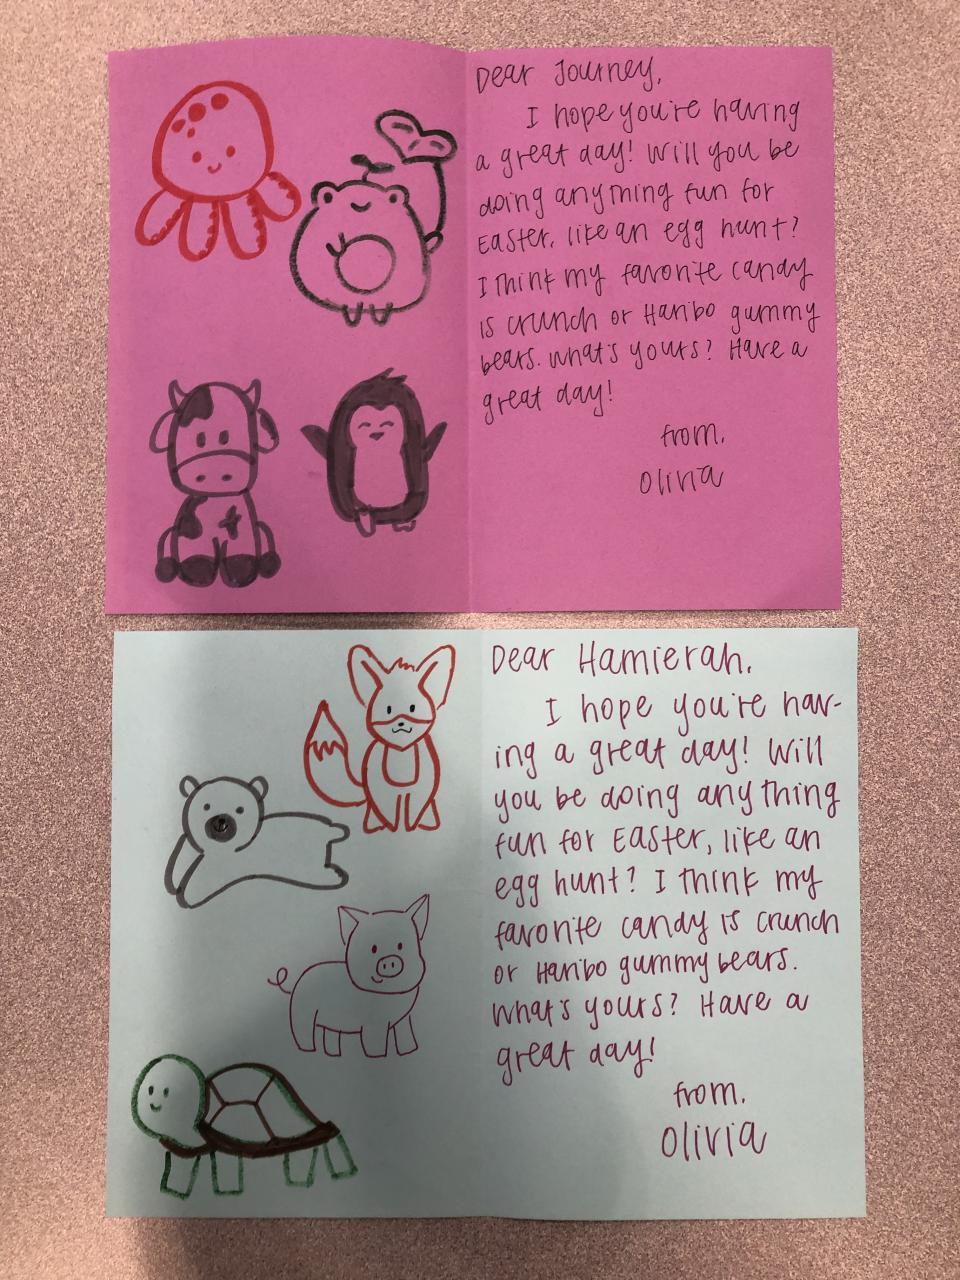 Dear Journey,
I hope you're having
a great day! Will you be
doing anything fun for
Easter, like an egg hunt?
I think my favorite candy
is crunch or Haribo gummy
bears. What's yours? Have a
great day!
from,
Olivia
Dear Hamierah,
I hope you're hav-
ing a great day! Will
you be doing anything
fun for Easter, like an
egg hunt? I think my
favorite candy is crunch
or Haribo gummy bears.
What's yours? Have a
great day!
from,
Olivia